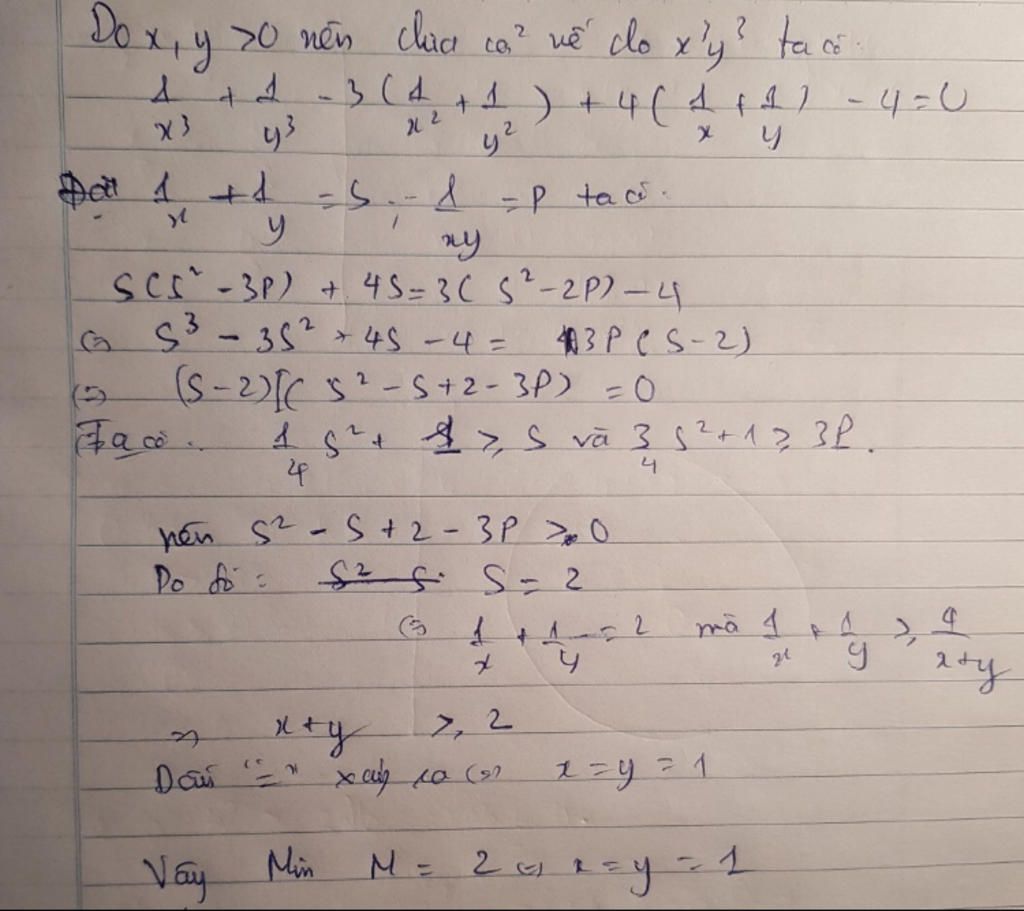 Do x, y >0 nên chia cả vế cho x³y³ ta có.
1/x³ + 1/y³ - 3(1/x² + 1/y²) + 4(1/x + 1/y) - 4=0
Đặt 1/x + 1/y = S ; 1/xy = P ta có.
S(S² - 3P) + 4S=3(S²-2P)-4
⇔ S³ - 3S² + 4S - 4 = 3P(S-2)
⇔ (S-2)[(S² - S+2-3P) =0
Ta có. 1/4 S² + 1 ≥ S và 3/4 S²+1 ≥ 3P.
nên S² - S + 2 - 3P ≥ 0
Do đó : S = 2
⇔ 1/x + 1/y = 2 mà 1/x + 1/y ≥ 4/x+y
⇒ x+y ≥ 2
Dấu "=" xảy ra ⇔ x=y=1
Vậy Min M = 2 ⇔ x=y=1